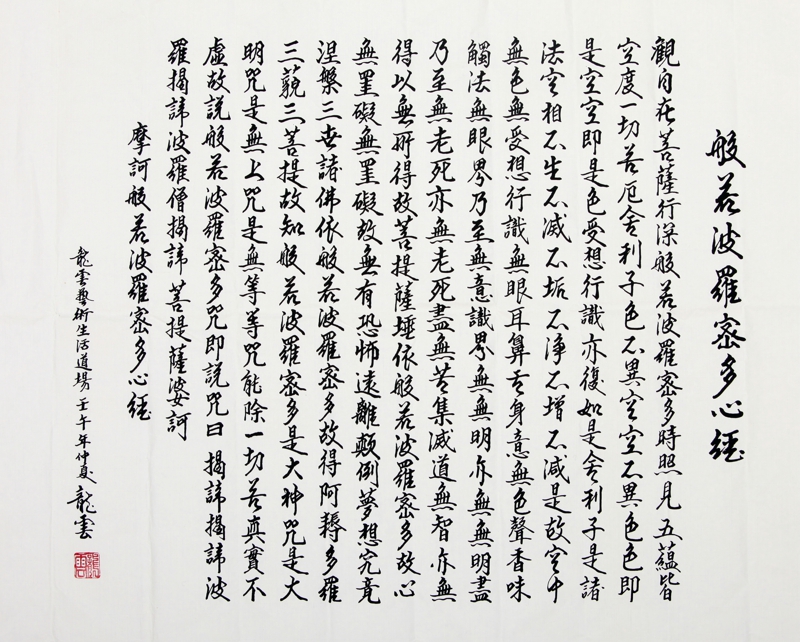 般若波羅密多心經
觀自在菩薩行深般若波羅密多時照見五蘊皆
空度一切苦厄舍利子色不異空空不異色色即
是空空即是色受想行識亦復如是舍利子是諸
法空相不生不滅不垢不淨不增不減是故空中
無色無受想行識無眼耳鼻舌身意無色聲香味
觸法無眼界乃至無意識界無無明亦無無明盡
乃至無老死亦無老死盡無苦集滅道無智亦無
得以無所得故菩提薩埵依般若波羅密多故心
無罣礙無罣礙故無有恐怖遠離顛倒夢想究竟
涅槃三世諸佛依般若波羅密多故得阿耨多羅
三藐三菩提故知般若波羅密多是大神咒是大
明咒是無上咒是無等等咒能除一切苦真實不
虛故說般若波羅密多咒即說咒曰 揭諦揭諦 波
羅揭諦 波羅僧揭諦 菩提薩婆訶
摩訶般若波羅密多心經
龍雲藝術生活道場 壬午年仲夏 龍雲